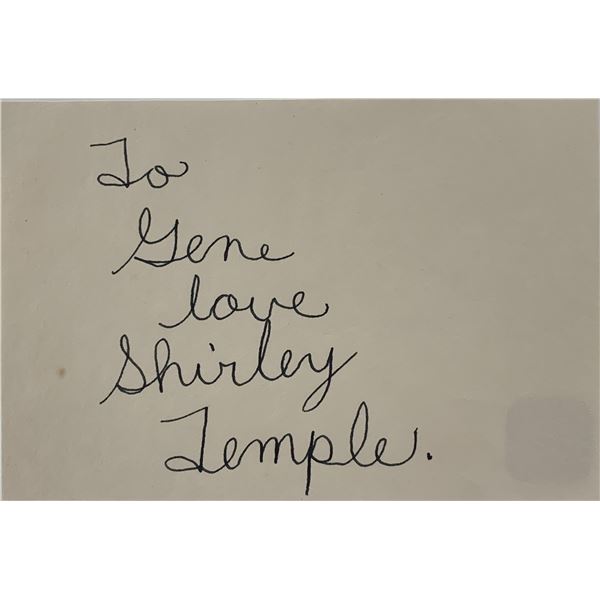 To
Gene
love
Shirley
Temple.